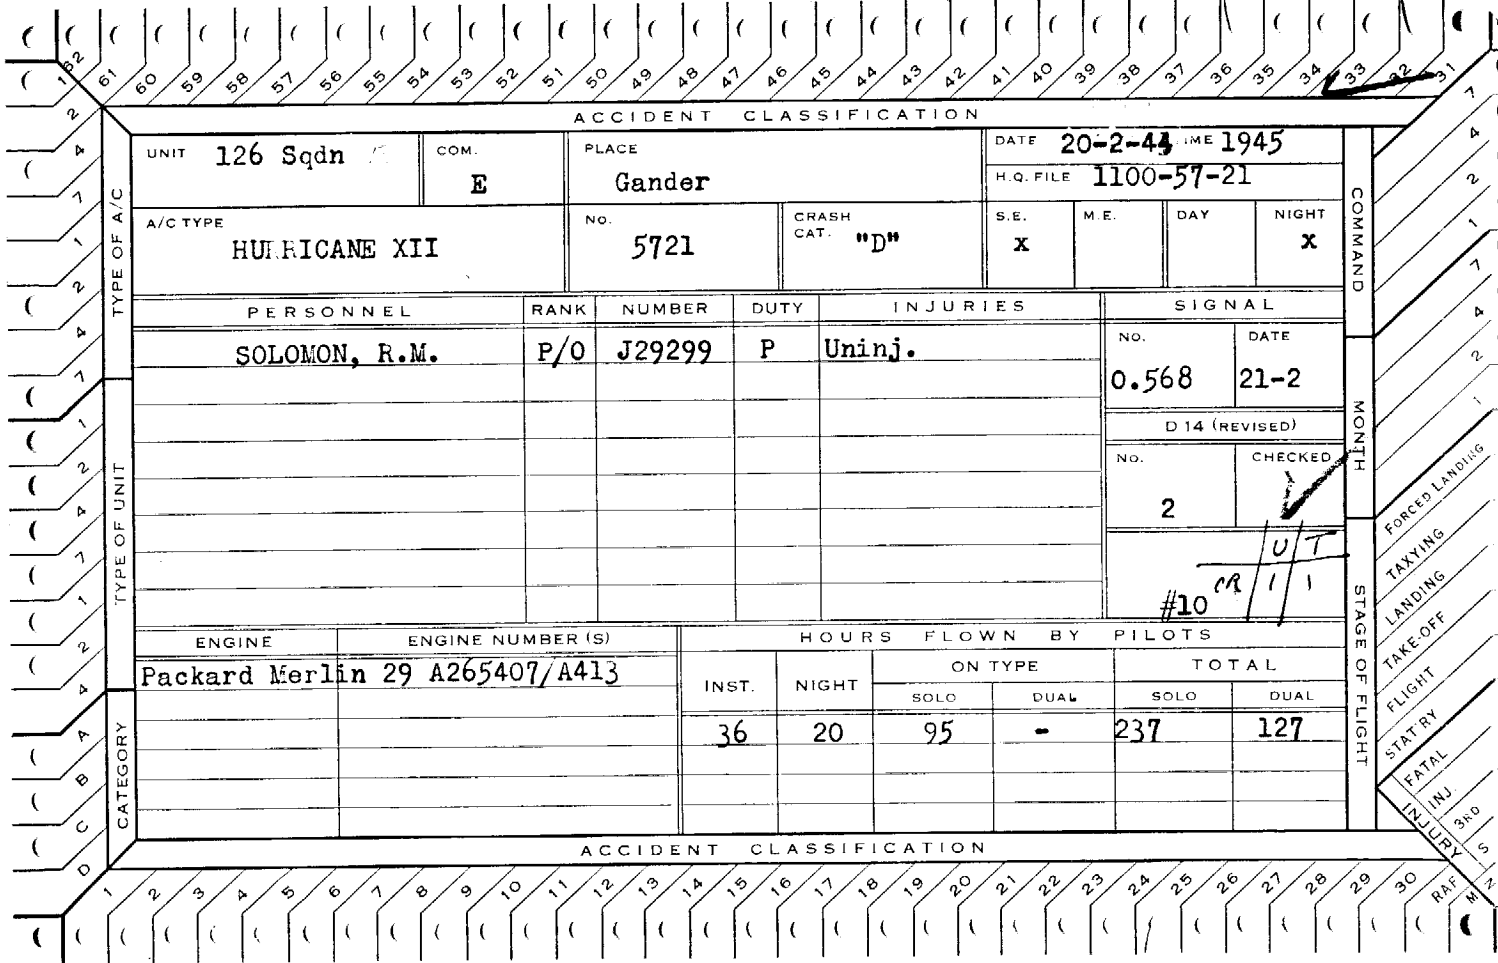 62 61 60 59 58 57 56 55 54 53 52 51 50 49 48 47 46 45 44 43 42 41 40 39 38 37 36 35 34 33 32 31
ACCIDENT CLASSIFICATION
UNIT 126 Sqdn COM. E PLACE Gander DATE 20-2-44 TIME 1945
H.Q. FILE 1100-57-21
A/C TYPE HURRICANE XII NO. 5721 CRASH CAT. "D" S.E. X M.E. DAY NIGHT X
PERSONNEL RANK NUMBER DUTY INJURIES SIGNAL
SOLOMON, R.M. P/O J29299 P Uninj. NO. 0.568 DATE 21-2
D 14 (REVISED)
NO. 2 CHECKED
U T
CR 1 1
#10
ENGINE ENGINE NUMBER (S) HOURS FLOWN BY PILOTS
Packard Merlin 29 A265407/A413 INST. NIGHT ON TYPE TOTAL
SOLO DUAL SOLO DUAL
36 20 95 - 237 127
ACCIDENT CLASSIFICATION
1 2 3 4 5 6 7 8 9 10 11 12 13 14 15 16 17 18 19 20 21 22 23 24 25 26 27 28 29 30 RAF
TYPE OF A/C
TYPE OF UNIT
CATEGORY
1 2 4 7 1 2 4 7 1 2 4 7 1 2 4 A B C D
COMMAND
MONTH
STAGE OF FLIGHT
7 4 2 1 7 4 2 1
FORCED LANDING
TAXYING
LANDING
TAKE-OFF
FLIGHT
STAT'RY
FATAL
INJ.
3RD
INJURY
S
N
M